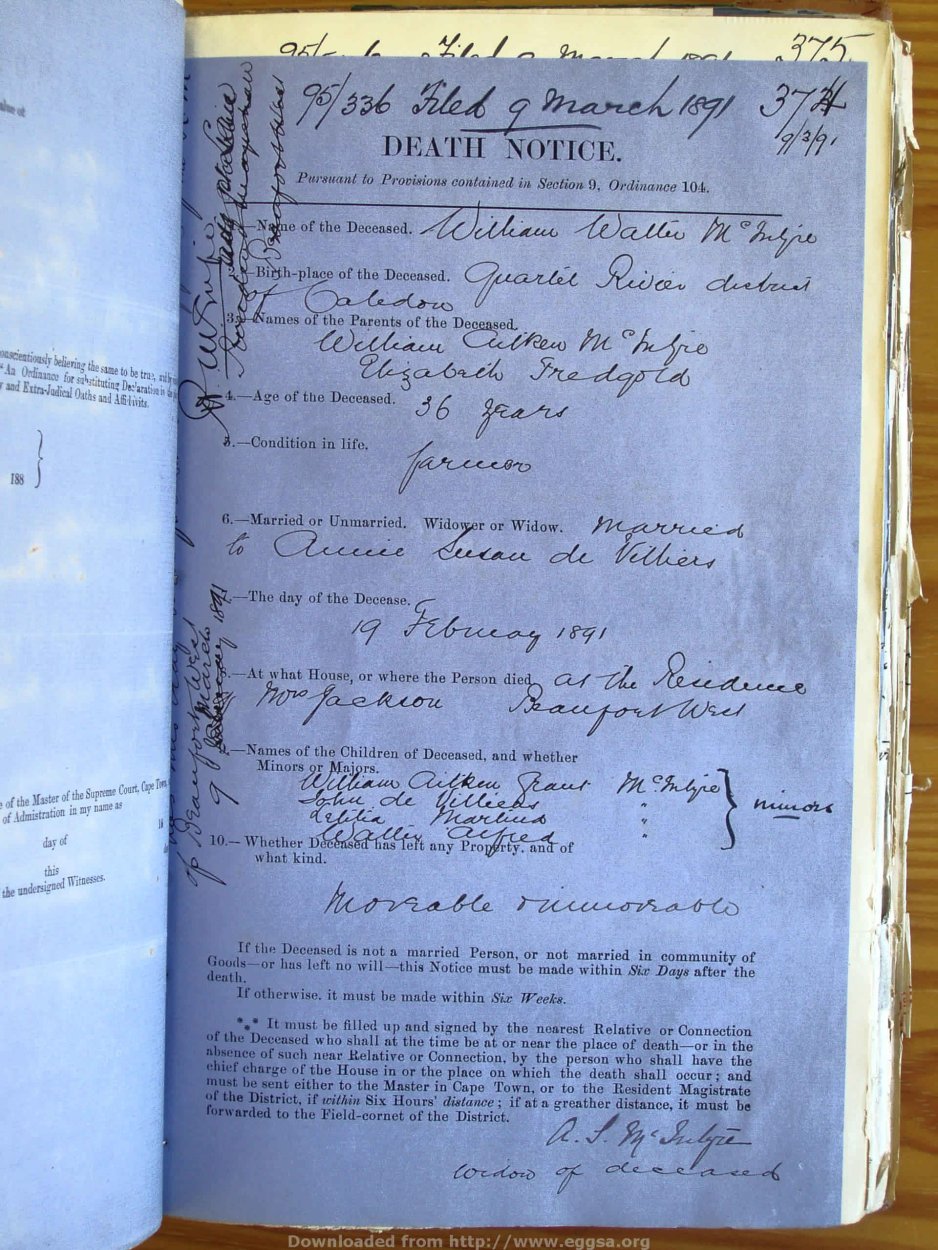 375
95/336 Filed 9 March 1891 374
9/3/91
DEATH NOTICE.
Pursuant to Provisions contained in Section 9, Ordinance 104.
—Name of the Deceased. William Walter McIntyre
—Birth-place of the Deceased. Quartel River district
of Caledon
3.—Names of the Parents of the Deceased.
William Aitken McIntyre
Elizabeth Fredgold
4.—Age of the Deceased. 36 years
5.—Condition in life.
farmer
6.—Married or Unmarried. Widower or Widow. Married
to Annie Susan de Villiers
7.—The day of the Decease.
19 February 1891
8.—At what House, or where the Person died at the Residence
of Mrs Jackson Beaufort West
—Names of the Children of Deceased, and whether
Minors or Majors.
William Aitken Grant McIntyre
John de Villiers "
Martins "
Walter Alfred "
} minors
10.—Whether Deceased has left any Property, and of
what kind.
Moveable & immoveable
If the Deceased is not a married Person, or not married in community of
Goods—or has left no will—this Notice must be made within Six Days after the
death.
If otherwise, it must be made within Six Weeks.
*** It must be filled up and signed by the nearest Relative or Connection
of the Deceased who shall at the time be at or near the place of death—or in the
absence of such near Relative or Connection, by the person who shall have the
chief charge of the House in or the place on which the death shall occur; and
must be sent either to the Master in Cape Town, or to the Resident Magistrate
of the District, if within Six Hours' distance; if at a greather distance, it must be
forwarded to the Field-cornet of the District.
A. S. McIntyre
widow of deceased
of Beaufort West
9 March 1891
onscientiously believing the same to be true, and by
"An Ordinance for substituting Declaration in the
y and Extra-Judical Oaths and Affidivits.
188 }
e of the Master of the Supreme Court, Cape Town,
of Admistration in my name as
day of 18
this
the undersigned Witnesses.
Downloaded from http://www.eggsa.org